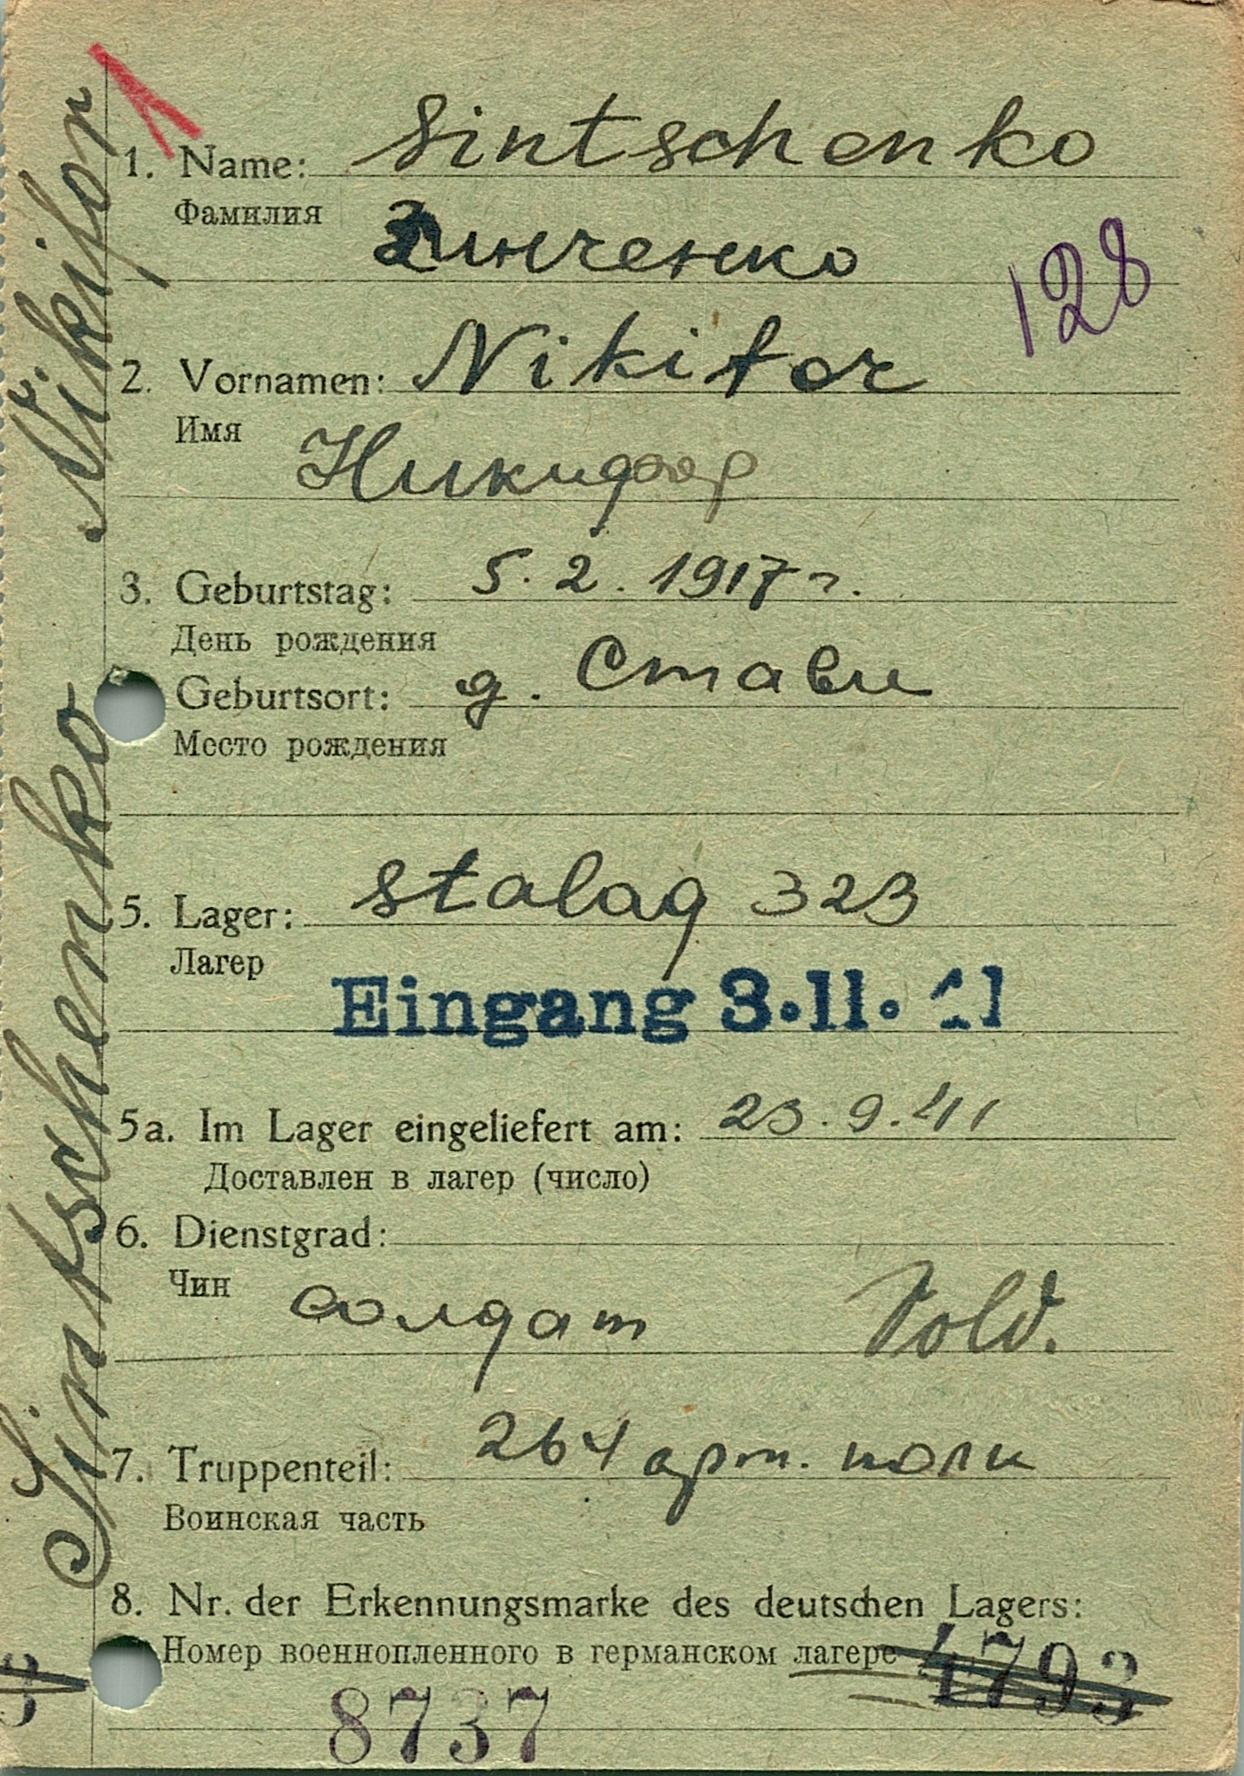 1
1. Name: Sintschenko
Фамилия
Зинченко
128
2. Vornamen: Nikifor
Имя
Никифор
3. Geburtstag: 5. 2. 1917 г.
День рождения
Geburtsort: д. Стави
Место рождения
5. Lager: Stalag 323
Лагер
Eingang 3.11.41
5a. Im Lager eingeliefert am: 23. 9. 41
Доставлен в лагер (число)
6. Dienstgrad:
Чин
солдат Sold.
7. Truppenteil: 264 арт. полк
Воинская часть
8. Nr. der Erkennungsmarke des deutschen Lagers:
Номер военнопленного в германском лагере 4793
8737
Sintschenko Nikifor